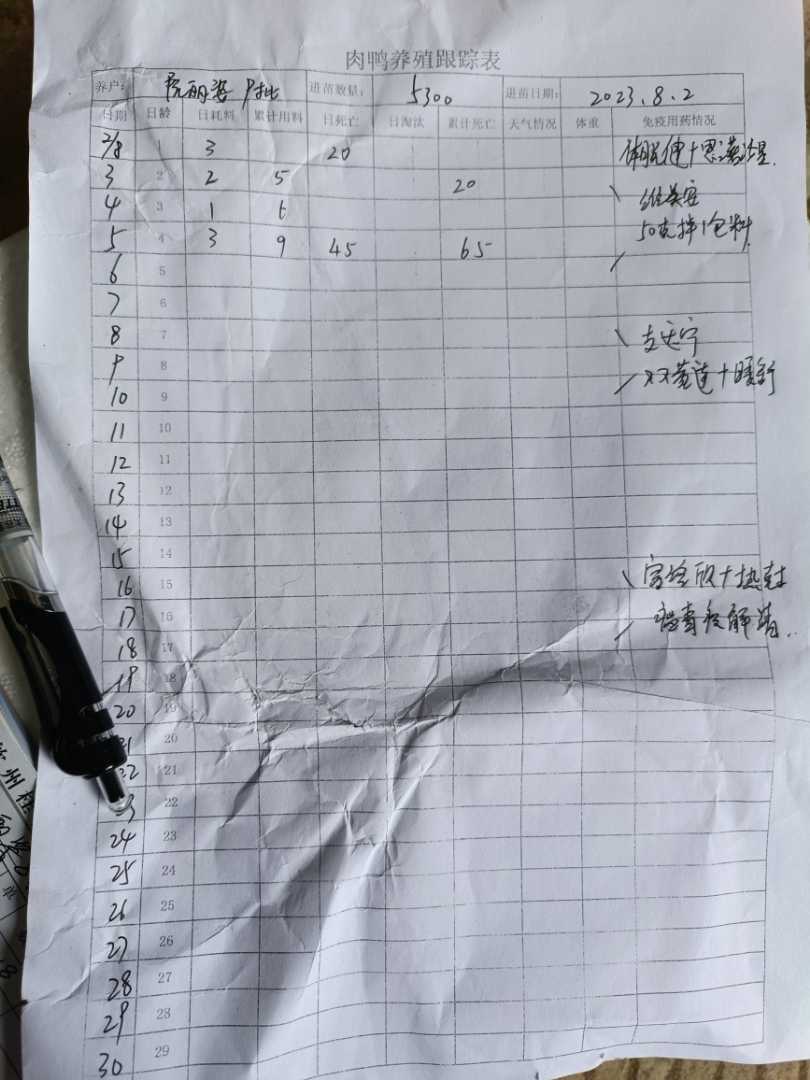 肉鸭养殖跟踪表
养户: 阮丽 批 进苗数量: 5300 进苗日期: 2023.8.2
日期 日龄 日耗料 累计用料 日死亡 日淘汰 累计死亡 天气情况 体重 免疫用药情况
2/8 1 3 20
3 2 2 5 20
4 3 1 6
50克拌1包料
5 4 3 9 45 65
6 5
7 6
8 7
9 8
10 9
11 10
12 11
13 12
14 13
15 14
16 15
17 16
18 17
19 18
20 19
21 20
22 21
23 22
24 23
25 24
26 25
27 26
28 27
29 28
30 29